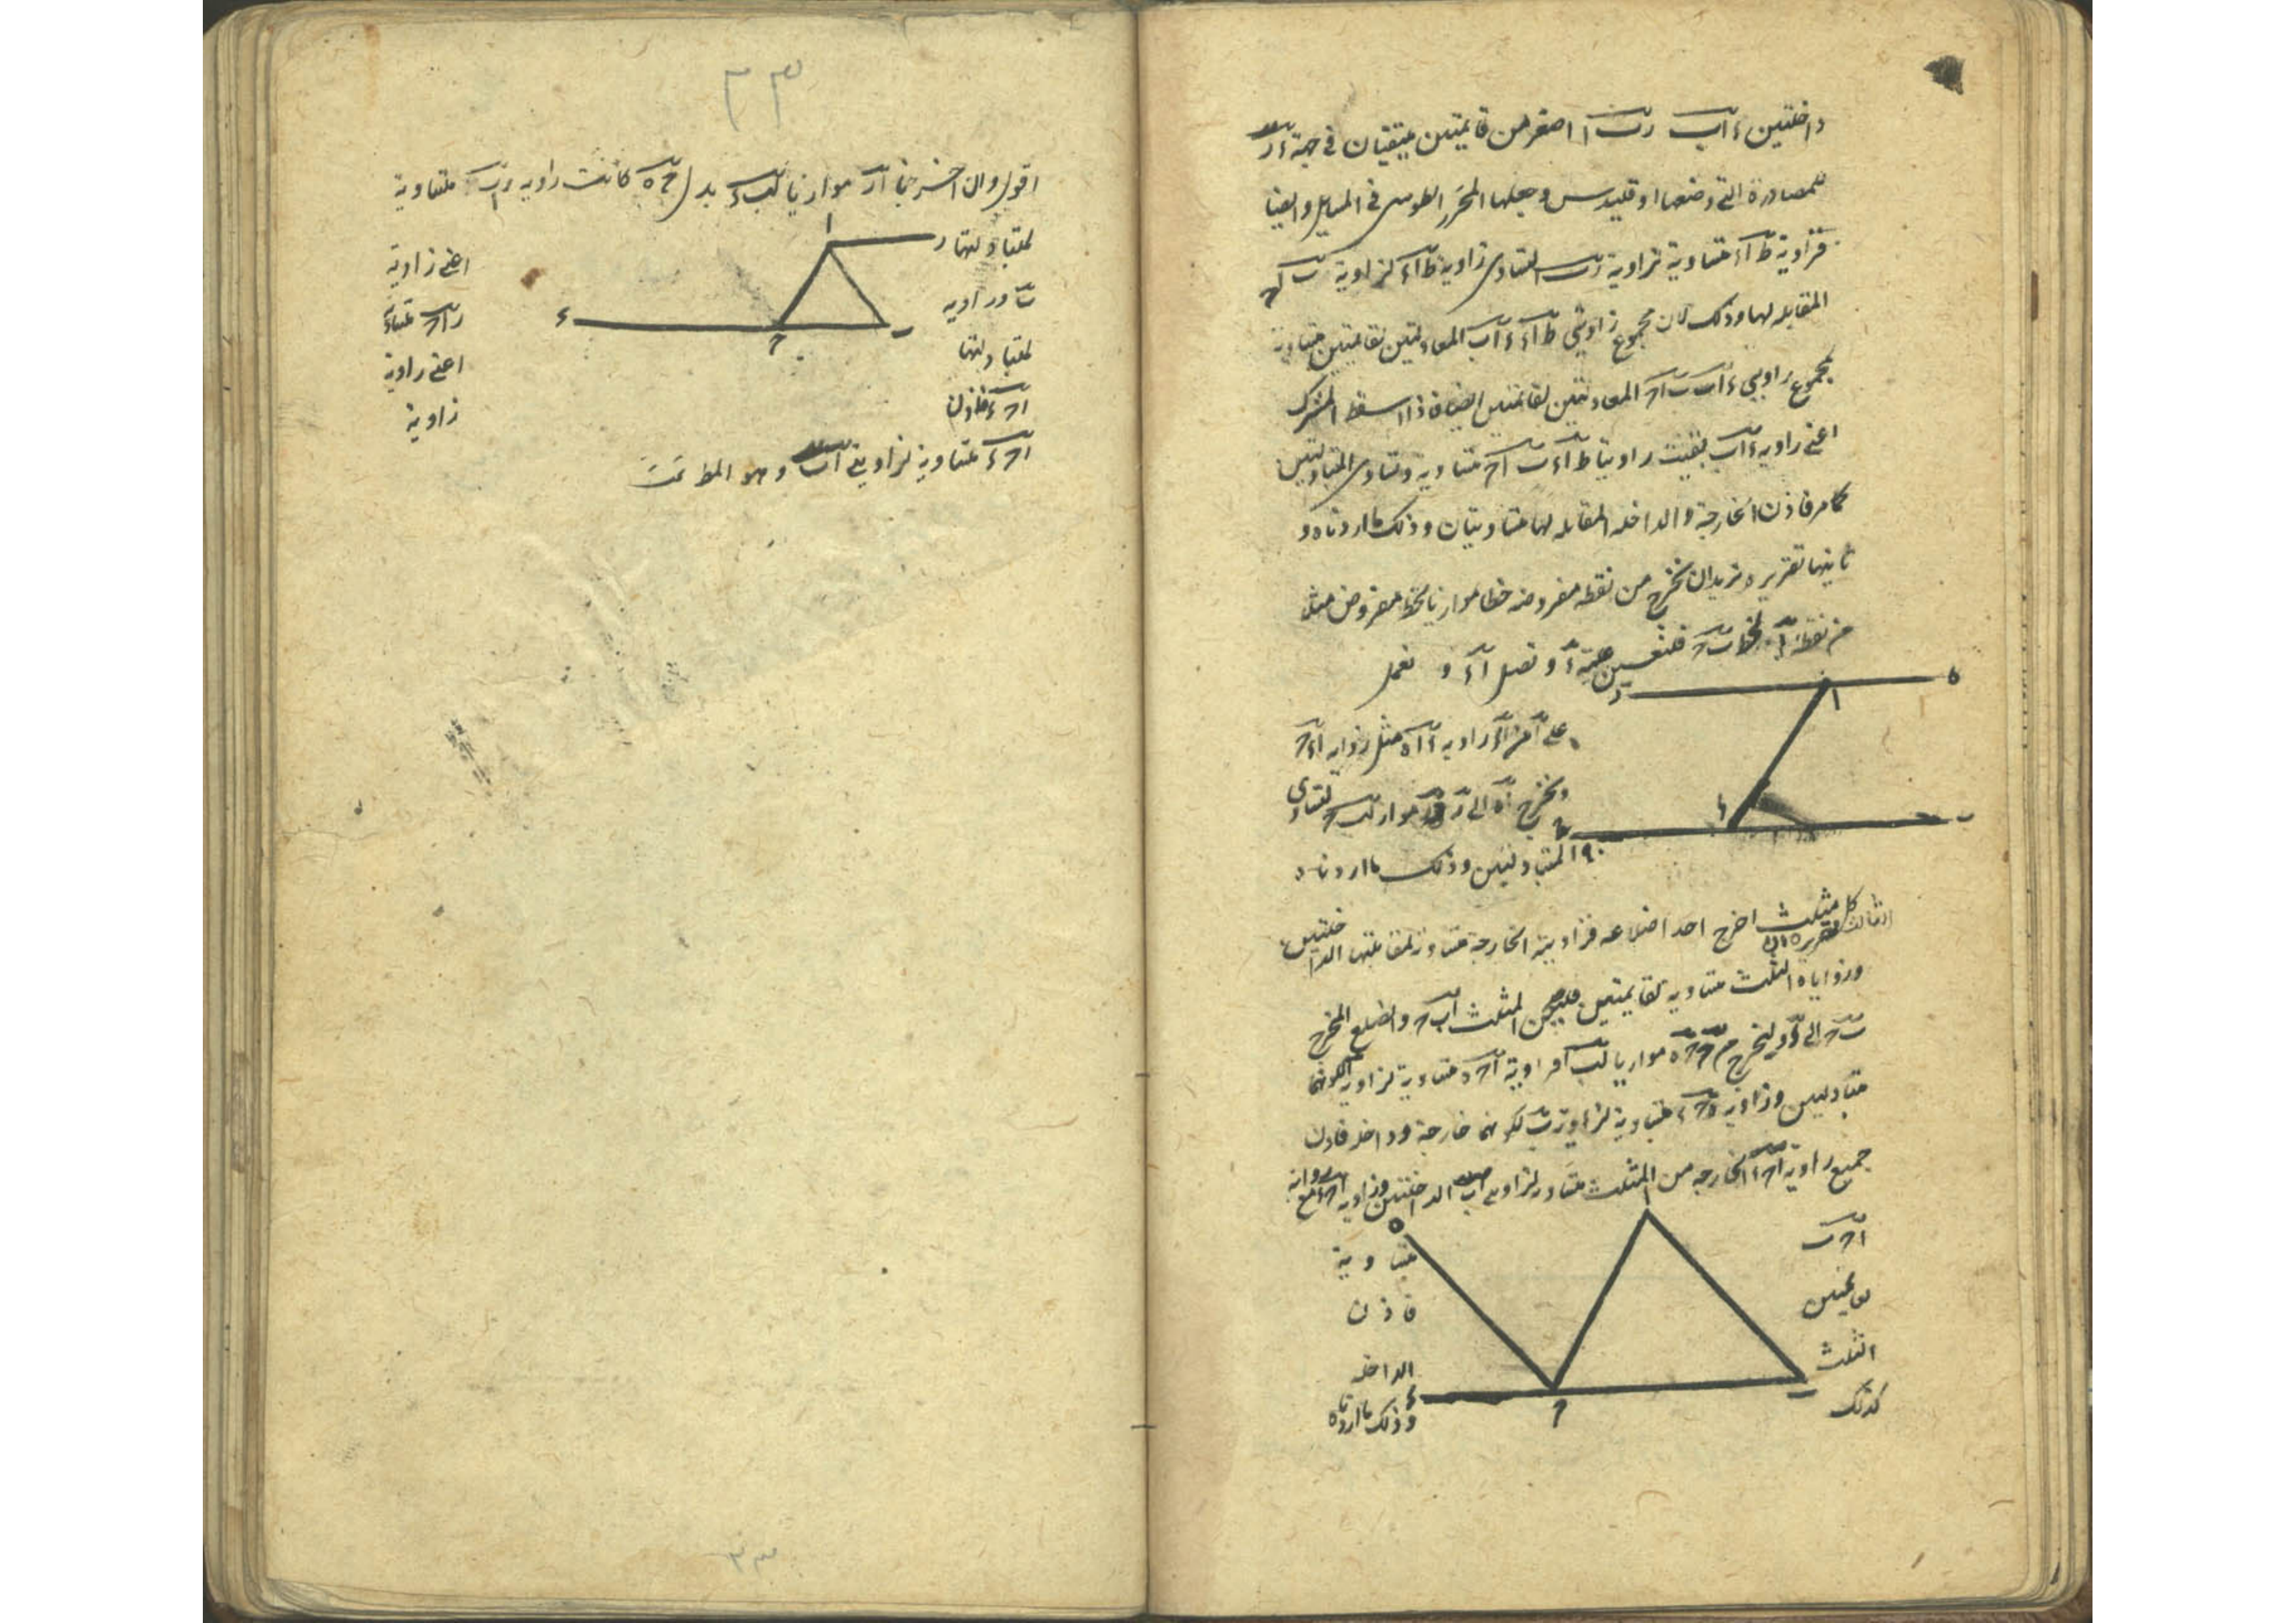 داخلتين ءاب رب ا اصغر من قايمتين يلتقيان فى جهة ءر
للمصادرة التى وضعها اوقليدس وجعلها المحرر الطوسى فى المسايل وايضا
فزاوية ط اء متساوية لزاوية رب لتساوى زاوية ط اء لزاوية ب اح
المقابله لها وذلك لان مجموع زاويتى ط اء ءاب المعادلتين لقايمتين متساوية
لمجموع زاويتى ءاب ب اح المعادلتين لقايمتين ايضا فاذا اسقط المشترك
اعنى زاويه ءاب بقيت زاويتا ط اء ب اح متساوية وتساوى المتبادلتين
كما مر فاذن الخارجة والداخله المقابله لها متساويتان وذلك ما اردناه و
ثانيها تقريره نريد ان نخرج من نقطه مفروضه خطا موازيا لخط مفروض مثلا
من نقطة ا لخط ب ح فنعين عليه ء ونصل اء و نعمل
ر ا ه
على ا من اء زاويه ءاه مثل زاويه اءح
ونخرج اه الى ر فهو مواز لب ح لتساوى
ح ء ب
المتبادلتين وذلك ما اردناه
الثالث تقريره ان كل مثلث اخرج احد اضلاعه فزاويته الخارجة متساوية لمقابلتيها الداخلتين
وزواياه الثلث متساويه لقايمتين فليكن المثلث ابح والضلع المخرج
ب ح الى ء ولنخرج من ح ح ه موازيا لب ا فزاوية اح ه متساوية لزاوية ا لكونهما
متبادلتين وزاوية ه ح ء متساوية لزاوية ب لكونهما خارجة وداخله فاذن
جميع زاوية اح ء الخارجه من المثلث متساوية لزاويتى اب الداخلتين وزاوية اح ء مع زاوية
اح ب ا ه متساوية
لقايمتين فاذن
الثلث الداخله
كذلك ب ح ء وذلك ما اردناه
٣٣
اقول وان اخرجنا ار موازيا لب ء بدل ح ه كانت زاويه راب متساوية
لمتبادلتها ر ا اعنى زاوية
ب وزاويه راح متساوية
ء ح ب
لمتبادلتها اعنى زاوية
اح ء فاذن زاوية
اح ء متساوية لزاويتى اب وهو المط تمت
٣٣